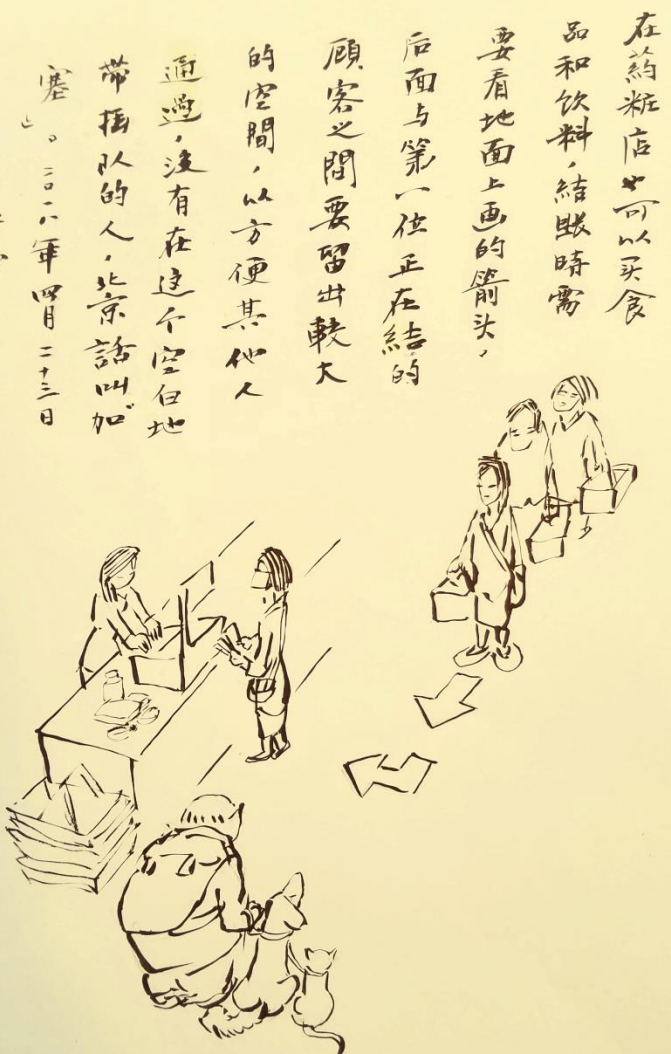 在药粧店也可以买食
品和饮料，結賬時需
要看地面上画的箭头，
后面与第一位正在結的
顾客之間要留出較大
的空間，以方便其他人
通過，沒有在這个空白地
帶插队的人，北京話叫“加
塞”。二〇一八年四月二十三日